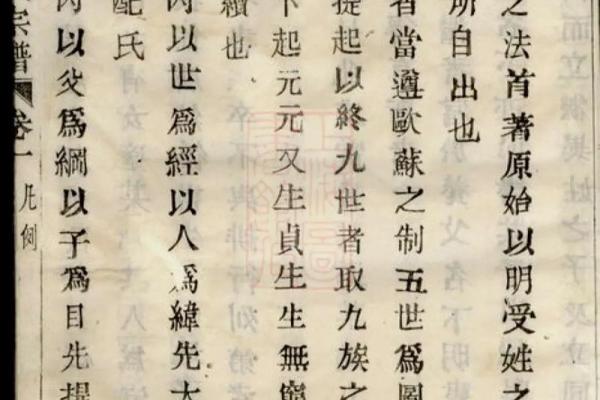 之法首著原始以明受姓之
所自出也
者當遵歐蘇之制五世爲圖
提起以終九世者取九族之
下起元元又生貞生生無窮
續也
內以世爲經以人爲緯先大
配氏
內以父爲綱以子爲目先提
宗譜 卷一 凡例